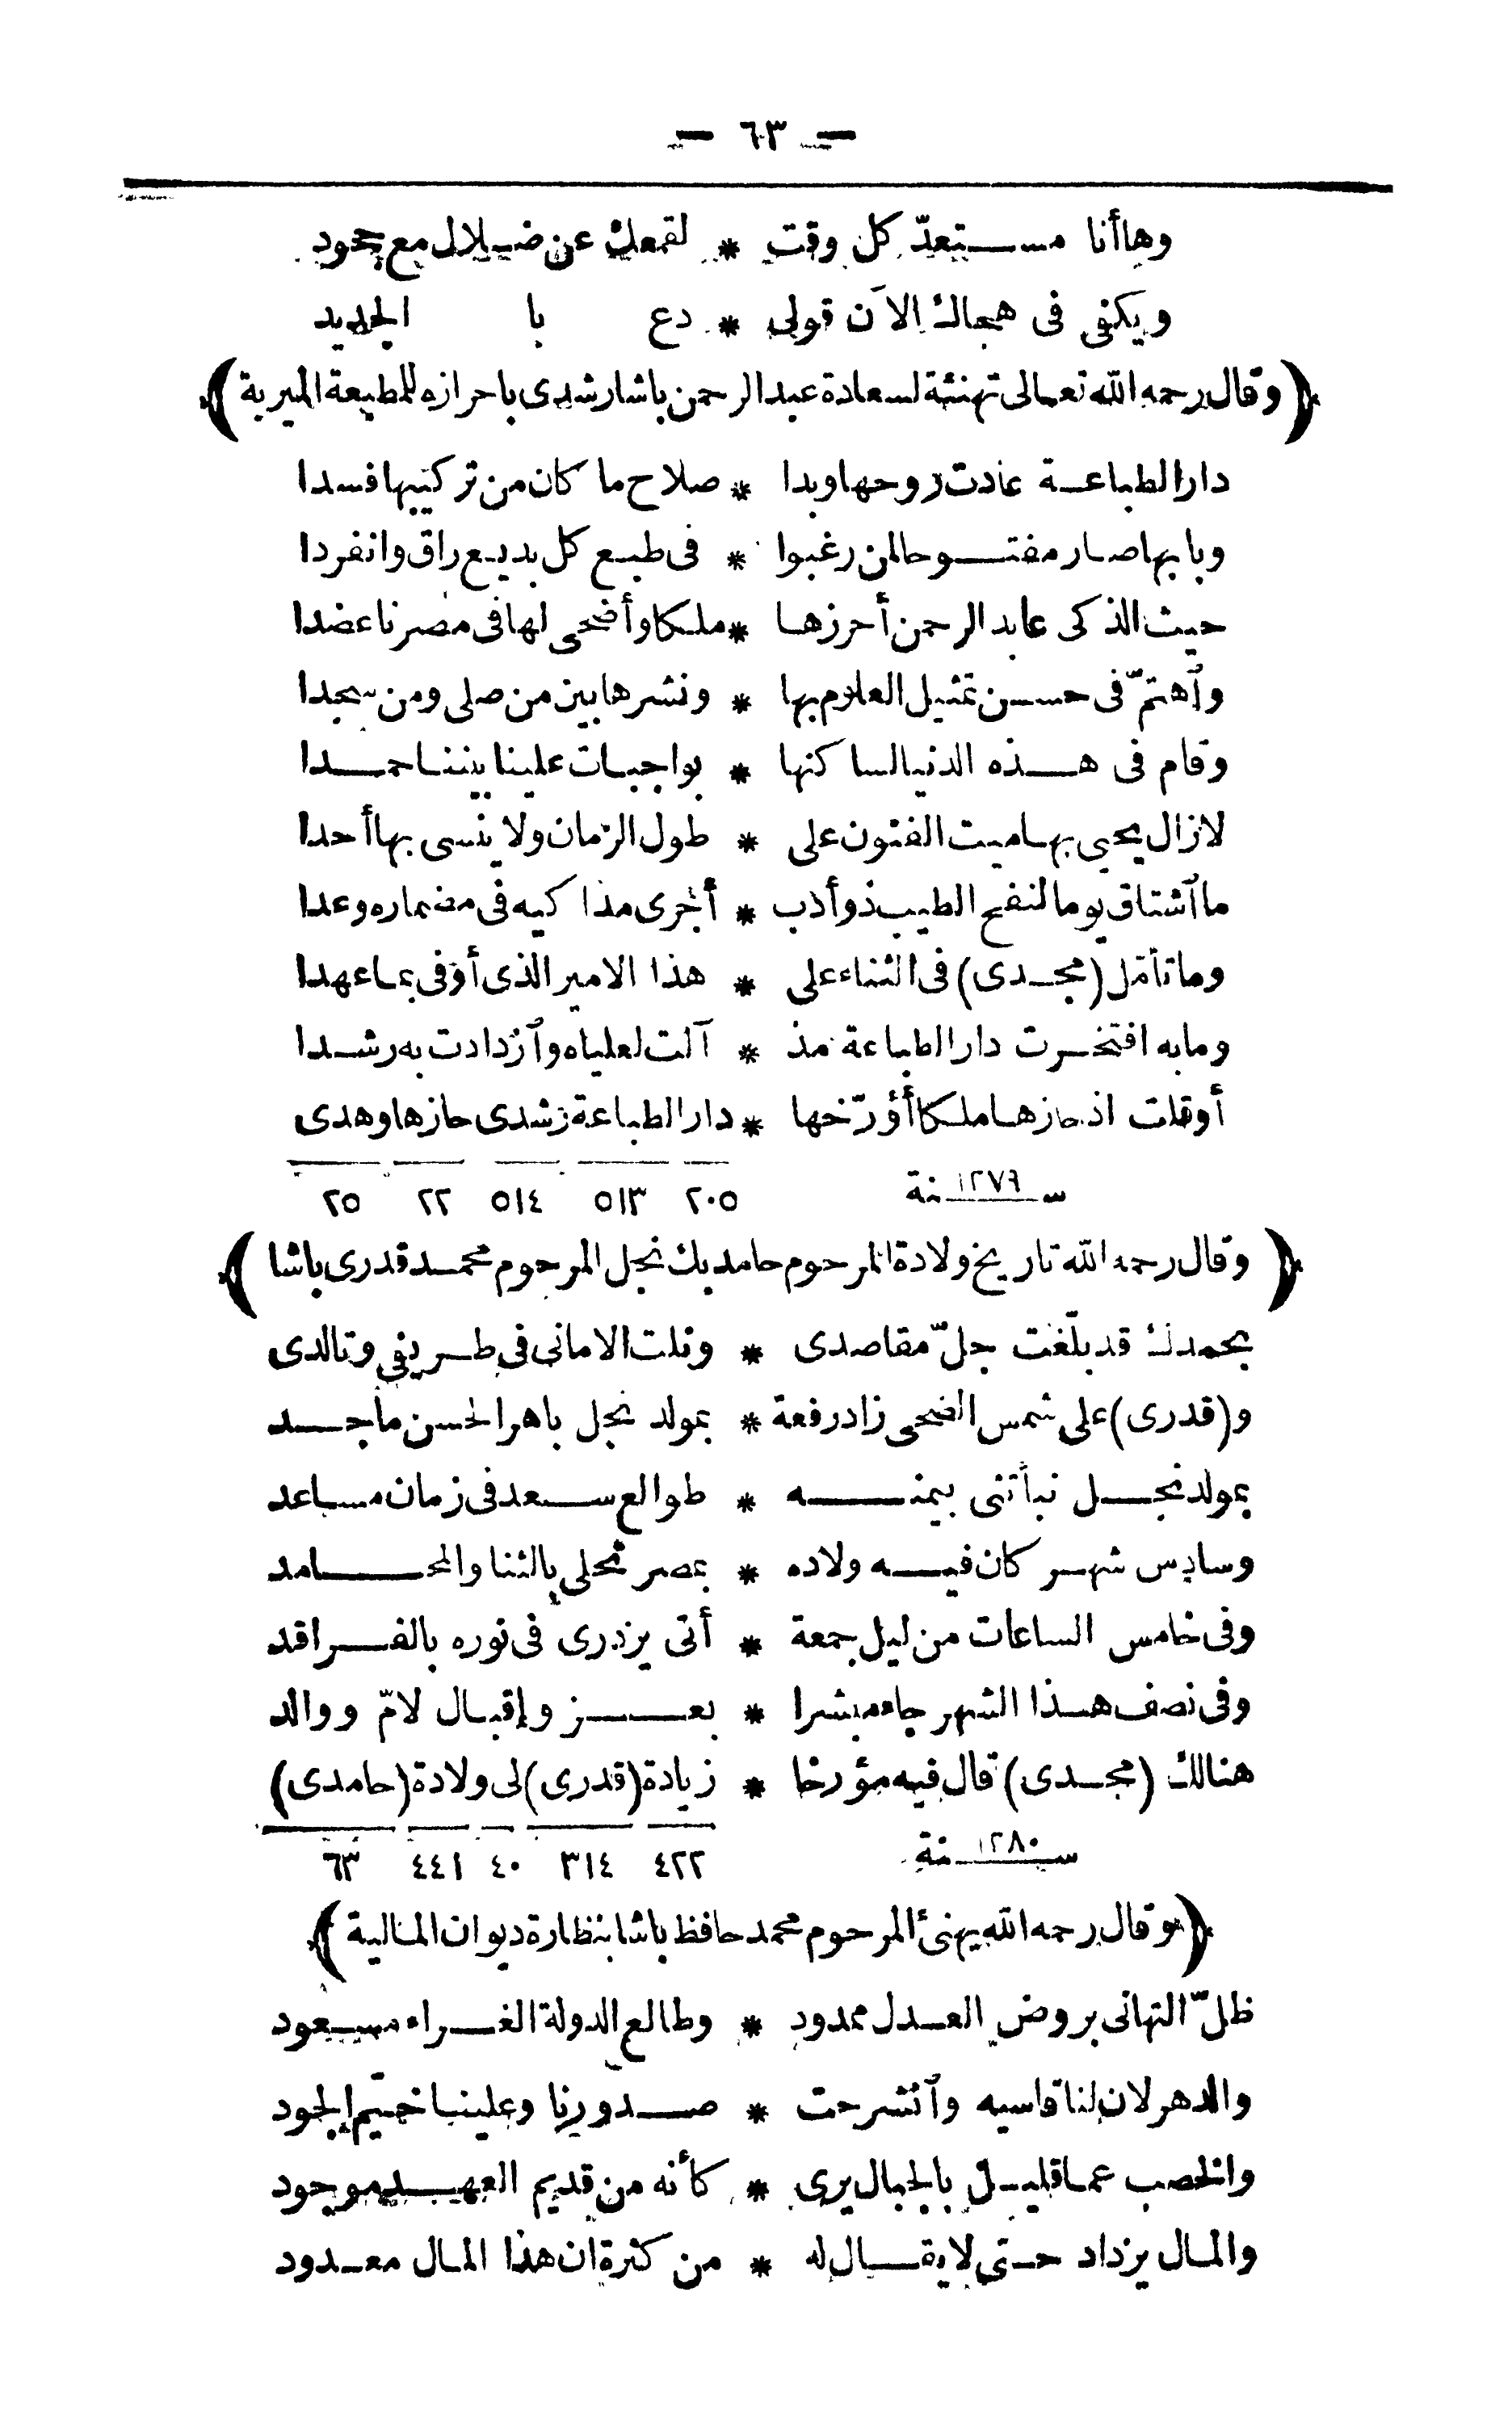 — ٦٣ —
وها أنا مستعدّ كل وقت * لقمعك عن ضلال مع جحود
ويكفى فى هجاك الآن قولى * دع يا الجديد
﴿ وقال رحمه الله تعالى تهنئة لسعادة عبد الرحمن باشا رشدى باحرازه للمطبعة الميرية ﴾
دار الطباعة عادت روحها وبدا * صلاح ما كان من تركيبها فسدا
وبابها صار مفتوحا لمن رغبوا * فى طبع كل بديع راق وانفردا
حيث الذكى عابد الرحمن أحرزها * ملكا وأضحى لها فى مصرنا عضدا
وٱهتمّ فى حسن تمثيل العلوم بها * ونشرها بين من صلى ومن سجدا
وقام فى هذه الدنيا لساكنها * بواجبات علينا بيننا حمدا
لازال يحيى بها ميت الفنون على * طول الزمان ولا ينسى بها أحدا
ما ٱشتاق يوما لنفح الطيب ذو أدب * أجرى مذاكيه فى مضماره وعدا
وما تأمّل (مجدى) فى الثناء على * هذا الامير الذى أوفى بما عهدا
وما به افتخرت دار الطباعة مذ * آلت لعلياه وٱزدادت به رشدا
أو قلت اذ حازها ملكا أؤرّخها * دار الطباعة رشدى حازها وهدى
سنة ١٢٧٩ ٢٠٥ ٥١٣ ٥١٤ ٢٢ ٢٥
﴿ وقال رحمه الله تاريخ ولادة المرحوم حامد بك نجل المرحوم محمد قدرى باشا ﴾
بحمدك قد بلّغت جلّ مقاصدى * ونلت الامانى فى طريفى وتالدى
و(قدرى) على شمس الضحى زاد رفعة * بمولد نجل باهر الحسن ماجد
بمولد نجل نبأتنى بيمنه * طوالع سعد فى زمان مساعد
وسادس شهر كان فيه ولاده * بمصر تحلى بالثنا والمحامد
وفى خامس الساعات من ليل جمعة * أتى يزدرى فى نوره بالفراقد
وفى نصف هذا الشهر جاء مبشرا * بعز وإقبال لامّ ووالد
هنالك (مجدى) قال فيه مؤرخا * زيادة (قدرى) لى ولادة (حامدى)
سنة ١٢٨٠ ٤٢٢ ٣١٤ ٤٠ ٤٤١ ٦٣
﴿ وقال رحمه الله يهنئ المرحوم محمد حافظ باشا بنظارة ديوان المالية ﴾
ظلّ التهانى بروض العدل ممدود * وطالع الدولة الغراء مسعود
والدهر لان لنا قاسيه وٱنشرحت * صدورنا وعلينا خيّم الجود
والخصب عما قليل بالجبال يرى * كأنه من قديم العهد موجود
والمال يزداد حتى لا يقال له * من كثرة ان هذا المال معدود